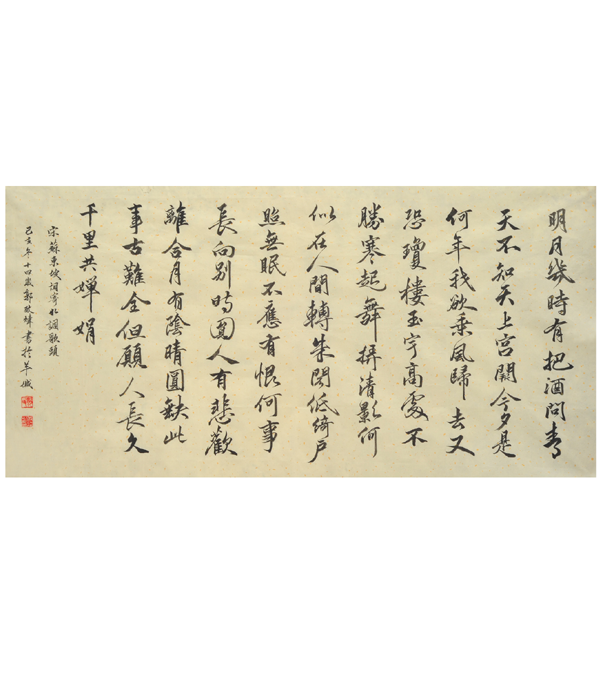 明月幾時有把酒問青
天不知天上宮闕今夕是
何年我欲乘風歸去又
恐瓊樓玉宇高處不
勝寒起舞挵清影何
似在人間轉朱閣低綺戶
照無眠不應有恨何事
長向别時圓人有悲歡
離合月有陰晴圓缺此
事古難全但願人長久
千里共嬋娟
宋蘇東坡詞寄水調歌頭
己亥年十四歲郭書於羊城